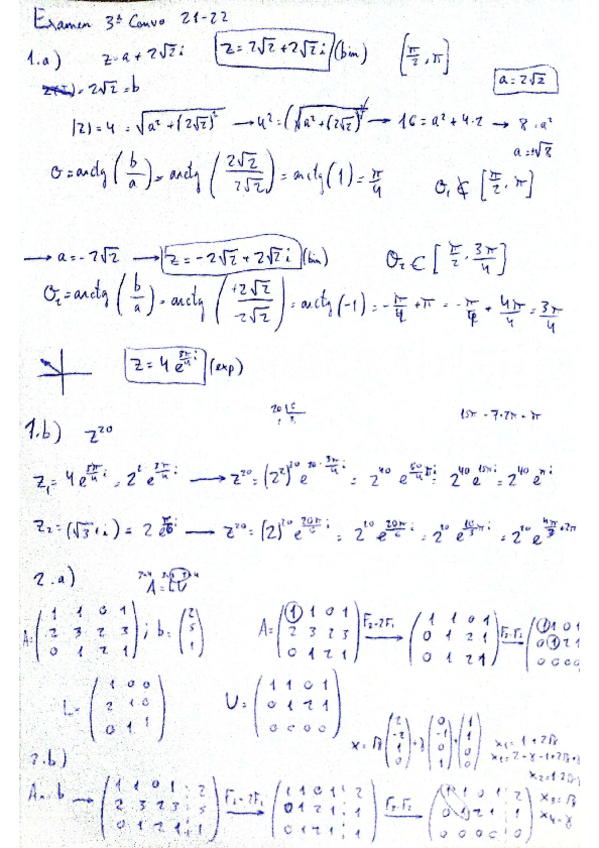 Examen 3ª Convo 21-22
1.a) z = a + 2√2 i z = 2√2 + 2√2 i (bin) [π/2, π]
= 2√2 = b a = 2√2
|z| = 4 = √(a² + (2√2)²) → 4² = (√(a² + (2√2)²))² → 16 = a² + 4·2 → 8 = a²
a = ±√8
θ = arctg (b/a) = arctg (2√2 / 2√2) = arctg (1) = π/4 θ₁ ∉ [π/2, π]
→ a = -2√2 → z = -2√2 + 2√2 i (bin) θ₂ ∈ [π/2, 3π/4]
θ₂ = arctg (b/a) = arctg (+2√2 / -2√2) = arctg (-1) = -π/4 + π = -π/4 + 4π/4 = 3π/4
z = 4 e^(3π/4 i) (exp)
15π - 7·2π = π
1.b) z²⁰
z₁ = 4 e^(3π/4 i) = 2² e^(3π/4 i) → z²⁰ = (2²)²⁰ e^(20·3π/4 i) = 2⁴⁰ e^(60/4 π i) = 2⁴⁰ e^(15π i) = 2⁴⁰ e^(π i)
z₂ = (√3 + i) = 2 e^(π/6 i) → z²⁰ = (2)²⁰ e^(20π/6 i) = 2²⁰ e^(20π/6 i) = 2²⁰ e^(10/3 π i) = 2²⁰ e^(4π/3 + 2π
2.a) A = LU
A = (1 1 0 1; 2 3 2 3; 0 1 2 1) ; b = (2; 5; 1) A = (1 1 0 1; 2 3 2 3; 0 1 2 1) F₂-2F₁ → (1 1 0 1; 0 1 2 1; 0 1 2 1) F₃-F₂ → (1 1 0 1; 0 1 2 1; 0 0 0 0
L = (1 0 0; 2 1 0; 0 1 1) U = (1 1 0 1; 0 1 2 1; 0 0 0 0)
2.b)
A·b → (1 1 0 1 : 2; 2 3 2 3 : 5; 0 1 2 1 : 1) F₂-2F₁ → (1 1 0 1 : 2; 0 1 2 1 : 1; 0 1 2 1 : 1) F₃-F₂ → (1 1 0 1 : 2; 0 1 2 1 : 1; 0 0 0 0 : 0)